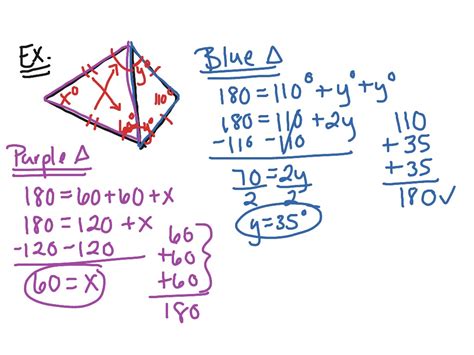 EX.
x°
y°
110°
60°
y°
Blue △
180 = 110° + y° + y°
180 = 110 + 2y
-110 -110
70 = 2y
2 2
y = 35°
110
+ 35
+ 35
180✓
Purple △
180 = 60 + 60 + x
180 = 120 + x
-120 -120
60 = x
60
+60
+60
180